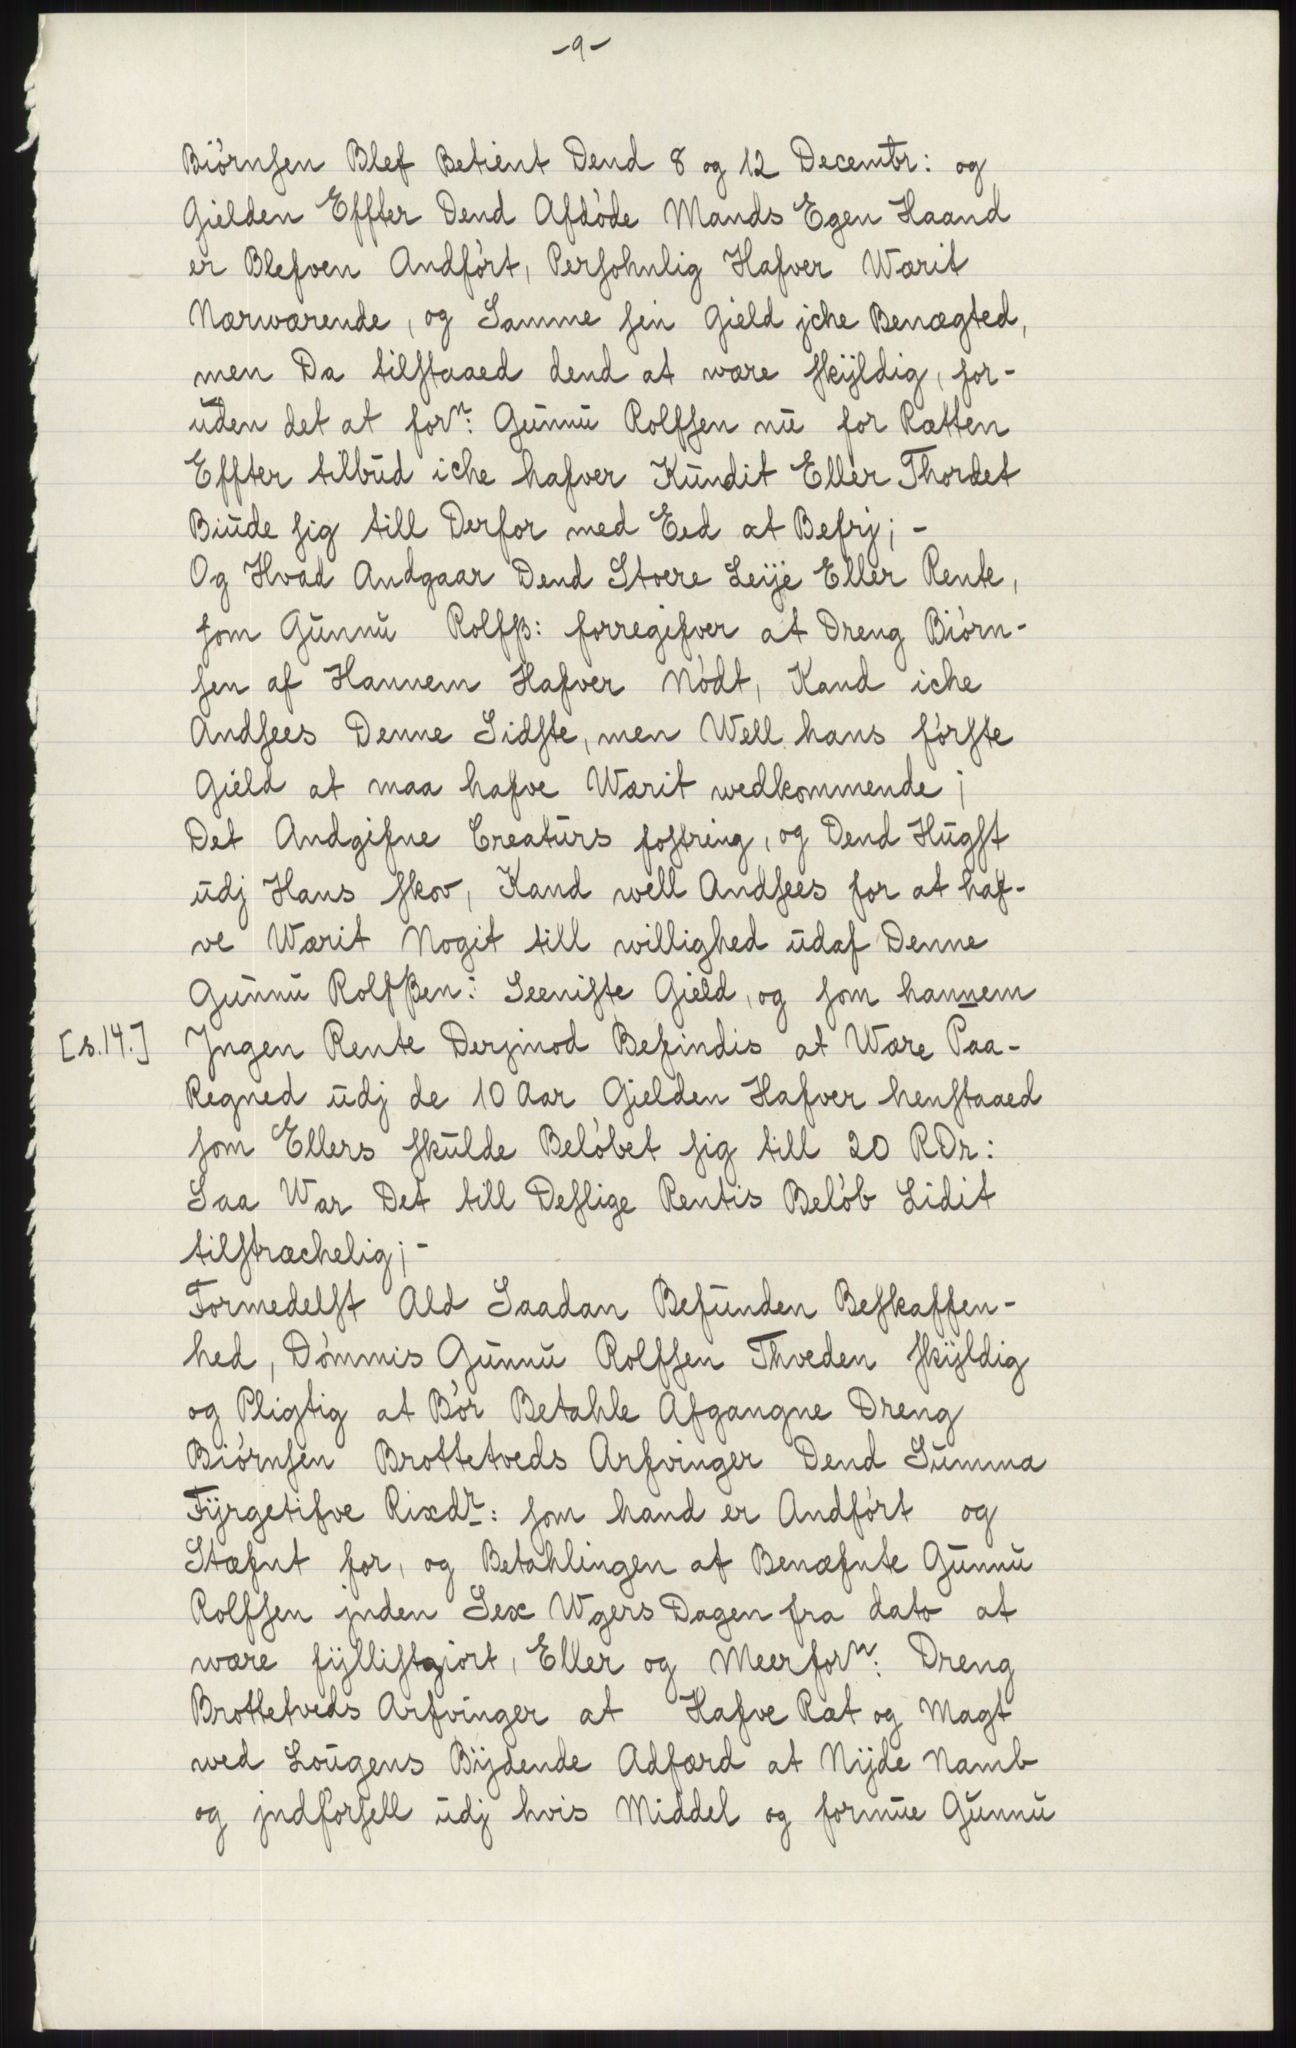 -9-
Biórnsen Blef Betient Dend 8 og 12 Decembr: og
Gielden Effter Dend Afdóde Mands Egen Haand
er Blefven Andfórt, Persohnlig Hafver Wærit
Nærwærende, og Samme sin Gield jche Benægted,
men Da tilstaaed dend at være skÿldig, for-
uden det at forn: Gunnu Rolfsen nu for Rætten
Effter tilbud iche hafver Kundit Eller Thordet
Biude sig till Derfor med Eed at Befrj; -
Og Hvad Andgaar Dend Stoere Leÿe Eller Rente,
som Gunnu Rolfß: forregifver at Dreng Biórn-
sen af Hannem Hafver Nódt, Kand iche
Andsees Denne Sidste, men Well hans fórste
Gield at maa hafve Wærit wedkommende;
Det Andgifne Creaturs fostring, og Dend Hugst
udj Hans skov, Kand well Andsees for at haf-
ve Wærit Nogit till willighed udaf Denne
Gunnu Rolfßen: Seeniste Gield, og som hannem
[s.14.] Jngen Rente Derjmod Befindis at Wære Paa-
Regned udj de 10 Aar Gielden Hafver henstaaed
som Ellers skulde Belóbet sig till 20 RDr:
Saa War Det till Deslige Rentis Belób Lidit
tilstræchelig; -
Formedelst Ald Saadan Befunden Beskaffen-
hed, Dómmis Gunnu Rolfsen Thveden skÿldig
og Pligtig at Bór Betahle Afgangne Dreng
Biórnsen Brottetveds Arfvinger Dend Summa
Fÿrgetifve Rixdr: som hand er Andfórt og
Stæfnt for, og Betahlingen af Benæfnte Gunnu
Rolfsen jnden Sex Wgers Dagen fra dato at
være fÿllistgiort, Eller og Meerforn: Dreng
Brottetveds Arfvinger at Hafve Ræt og Magt
ved Lougens Bÿdende Adfærd at Nÿde Namb
og jndfórsell udj hvis Middel og formue Gunnu